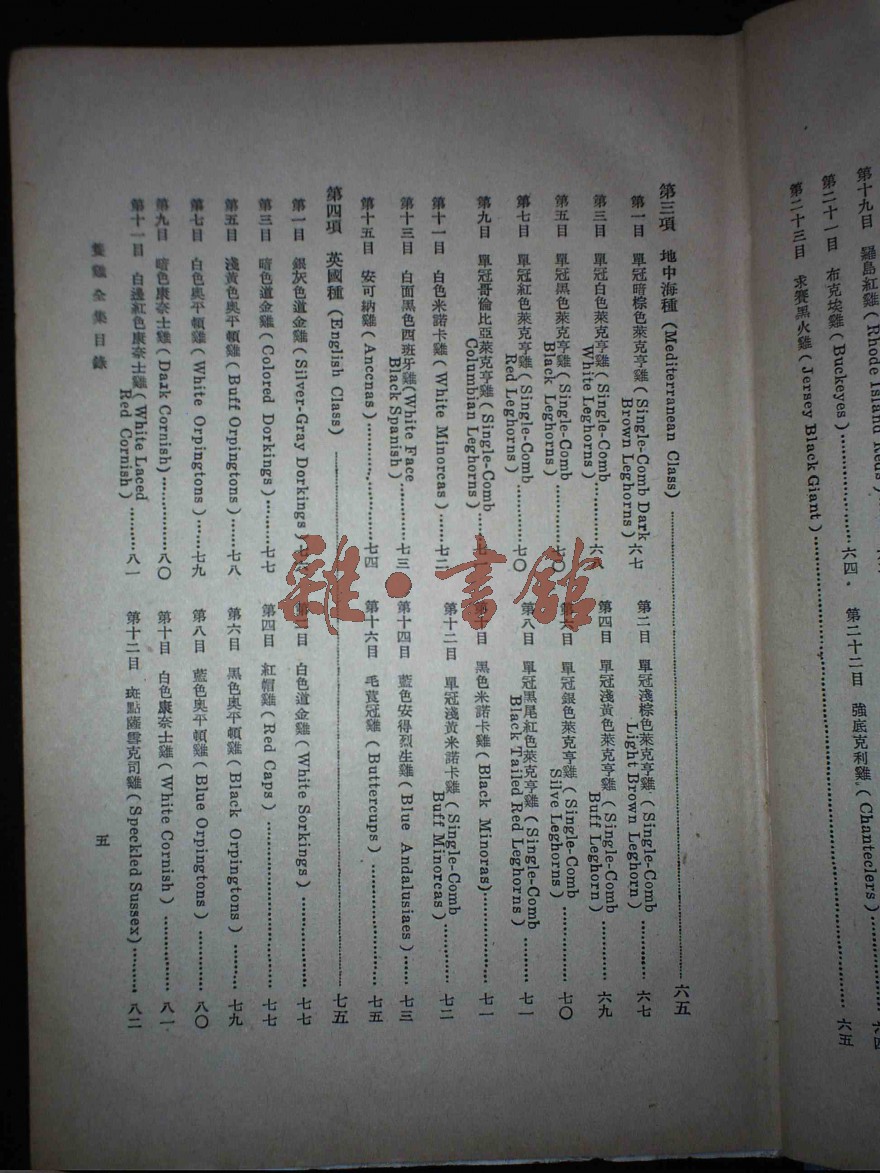 第十九目 羅島紅雞(Rhode Island Reds)
第二十一目 布克埃雞(Buckeyes)……六四 第二十二目 強底克利雞(Chanteclers)……六四
第二十三目 求賽黑火雞(Jersey Black Giant)……六五
第三項 地中海種(Mediterranean Class)……六五
第一目 單冠暗棕色萊克亨雞(Single-Comb Dark Brown Leghorns)六七 第二目 單冠淺棕色萊克亨雞(Single-Comb Light Brown Leghorn)……六七
第三目 單冠白色萊克亨雞(Single-Comb White Leghorns)……六 第四目 單冠淺黃色萊克亨雞(Single-Comb Buff Leghorn)……六九
第五目 單冠黑色萊克亨雞(Single-Comb Black Leghorns)……〇 第六目 單冠銀色萊克亨雞(Single-Comb Silve Leghorns)……七〇
第七目 單冠紅色萊克亨雞(Single-Comb Red Leghorns)……七〇 第八目 單冠黑尾紅色萊克亨雞(Single-Comb Black Tailed Red Leghorns)……七一
第九目 單冠哥倫比亞萊克亨雞(Single-Comb Columbian Leghorns)…… 第十目 黑色米諾卡雞(Black Minoras)……七一
第十一目 白色米諾卡雞(White Minorcas)……七二 第十二目 單冠淺黃米諾卡雞(Single-Comb Buff Minorcas)……七二
第十三目 白面黑色西班牙雞(White Face Black Spanish)……七三 第十四目 藍色安得烈生雞(Blue Andalusiaes)……七三
第十五目 安可納雞(Ancenas)……七四 第十六目 毛茛冠雞(Buttercups)……七五
第四項 英國種(English Class)……七五
第一目 銀灰色道金雞(Silver-Gray Dorkings) 第二目 白色道金雞(White Sorkings)……七七
第三目 暗色道金雞(Colored Dorkings)……七七 第四目 紅帽雞(Red Caps)……七七
第五目 淺黃色奧平頓雞(Buff Orpingtons)……七八 第六目 黑色奧平頓雞(Black Orpingtons)……七九
第七目 白色奧平頓雞(White Orpingtons)……七九 第八目 藍色奧平頓雞(Blue Orpingtons)……八〇
第九目 暗色康奈士雞(Dark Cornish)……八〇 第十目 白色康奈士雞(White Cornish)……八一
第十一目 白邊紅色康奈士雞(White Laced Red Cornish)……八一 第十二目 斑點薩雲克司雞(Speckled Sussex)……八二
隻雞全集目錄 五
雜·書館